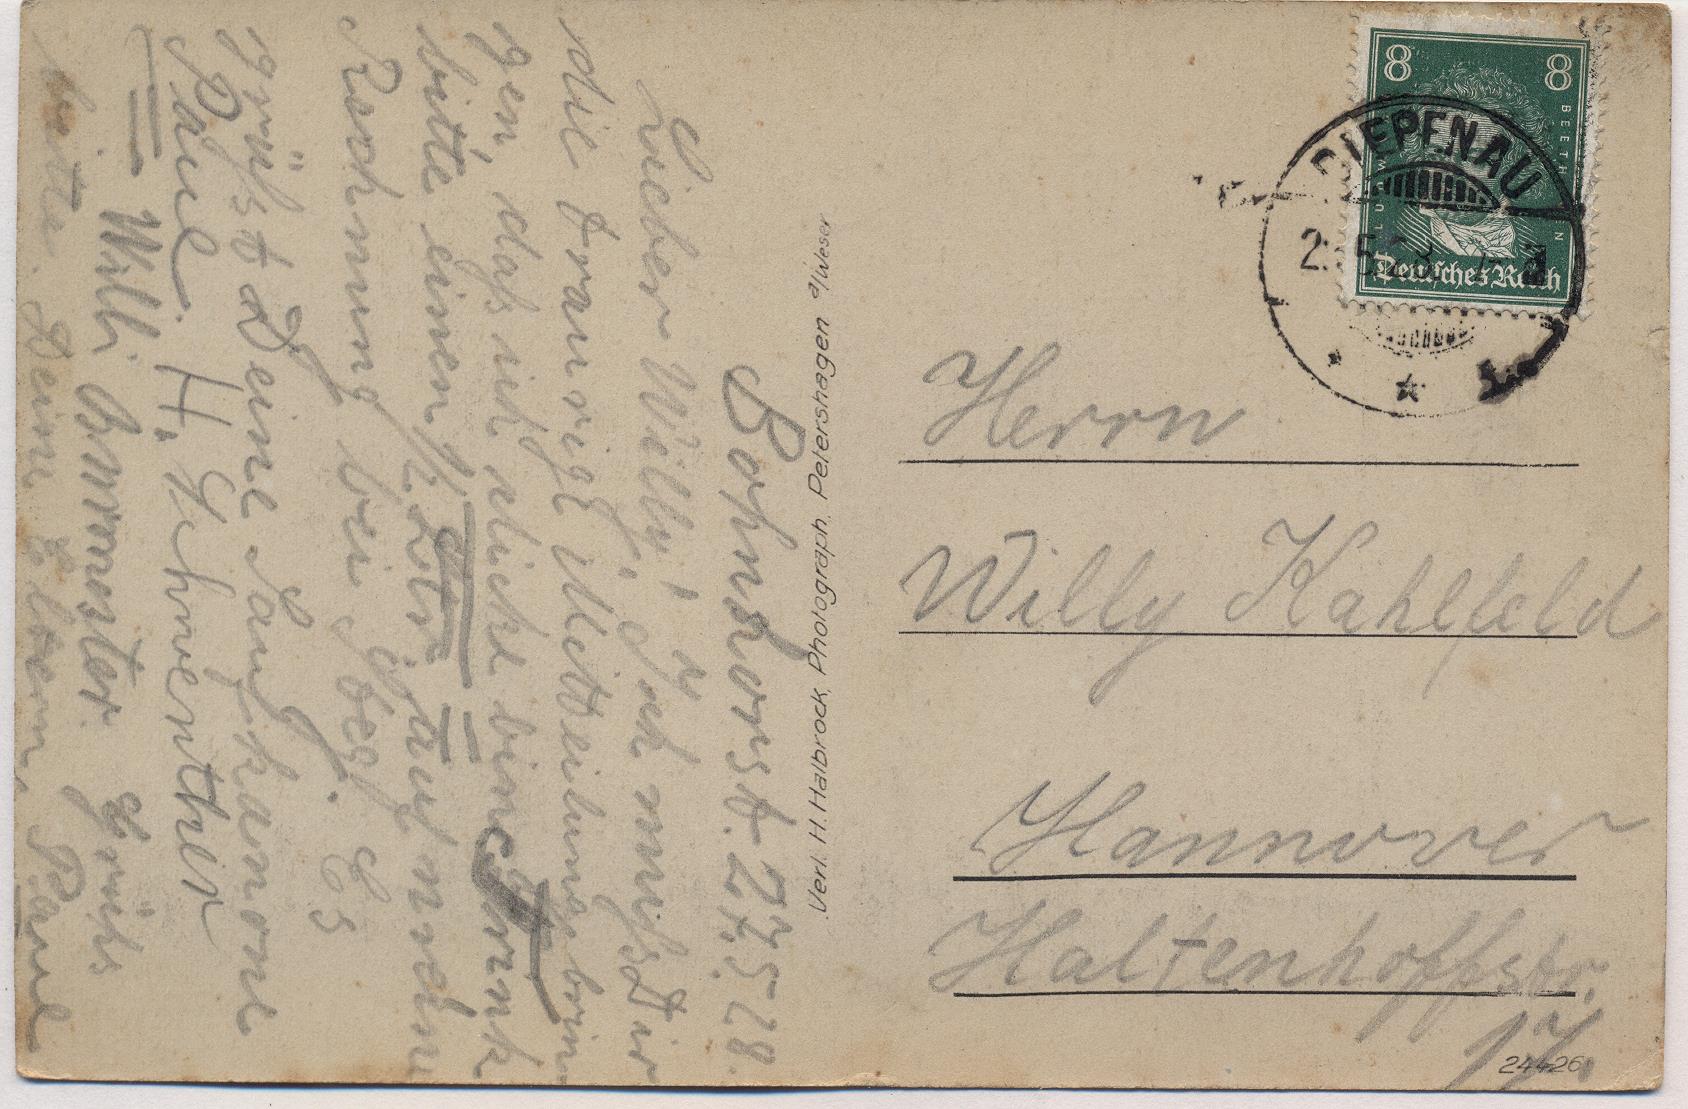 Bohnhorst. 27.5.28.
Lieber Willy! Ich muß Dir
die traurige Mitteilung brin
gen, daß ich pleite bin. Trink
bitte einen 1/2 Ltr auf meine
Rechnung bei Jbegl. Es
grüßt Deine Saufkanone
Paul. H. Schwentker
Willi Bormester. Grüße
bitte Deine Eltern, Paul
Verl. H. Halbrock, Photograph, Petershagen a/Weser
8 8
LUDWIG BEETHOVEN
Deutsches Reich
DIEPENAU
Herrn
Willy Kahlfeld
Hannover
Haltenhoffstr.
17.
24426